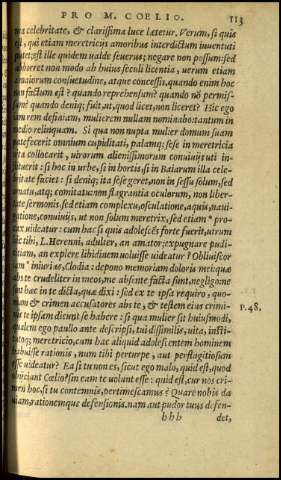 PRO M. COELIO. 113
celebritate, & clarissima luce lætetur. Verum, si quis
est, qui etiam meretricijs amoribus interdictum iuuentuti
putet; est ille quidem ualde seuerus; negare non possum: sed
abhorret non modo ab huius seculi licentia, uerum etiam
maiorum consuetudine, atque concessis. quando enim hoc
non factum est? quando reprehensum? quando nõ permis-
sum? quando deniq; fuit, ut, quod licet, non liceret? Hic ego
rem definiam, mulierem nullam nominabo: tantum in
medio relinquam. Si qua non nupta mulier domum suam
patefecerit omnium cupiditati, palamq; sese in meretricia
uita collocarit, uirorum alienissimorum conuiuijs uti in-
stituerit: si hoc in urbe, si in hortis, si in Baiarum illa cele-
britate faciat: si deniq; ita sese gerat, non in\cessu solum, sed
ornatu, atq; comitatu, nõ flagrantia oculorum, non liber-
tate sermonis, sed etiam complexu, osculatione, aquis, naui-
gatione, conuiuijs, ut non solum meretrix, sed etiam * pro-
cax uideatur: cum hac si quis adolescẽs forte fuerit, utrum
hic tibi, L. Herenni, adulter, an amator; expugnare pudi-
citiam, an explere libidinem uoluisse uideatur? Obliuiscor
iam * iniurias, Clodia: depono memoriam doloris mei: quæ
abs te crudeliter in meos, me absente facta sunt, negligo: ne
sint hæc in te dicta, quæ dixi: sed ex te ipsa requiro, quo-
niam & crimen accusatores abs te, & testem eius crimi-
nis te ipsam dicunt se habere: si qua mulier sit huiusmodi,
qualem ego paullo ante descripsi, tui dissimilis, uita, insti-
tutoq; meretricio, cum hac aliquid adolescentem hominem
habuisse rationis, num tibi perturpe, aut perflagitiosum
esse uideatur? Ea si tu non es, sicut ego malo, quid est, quod
obijciant Cœlio? sin eam te uolunt esse: quid est, cur nos cri-
men hoc, si tu contemnis, pertimescamus? Quare nobis da
uiam, rationemque defensionis. nam aut pudor tuus defen-
hhh det,
P. 48.